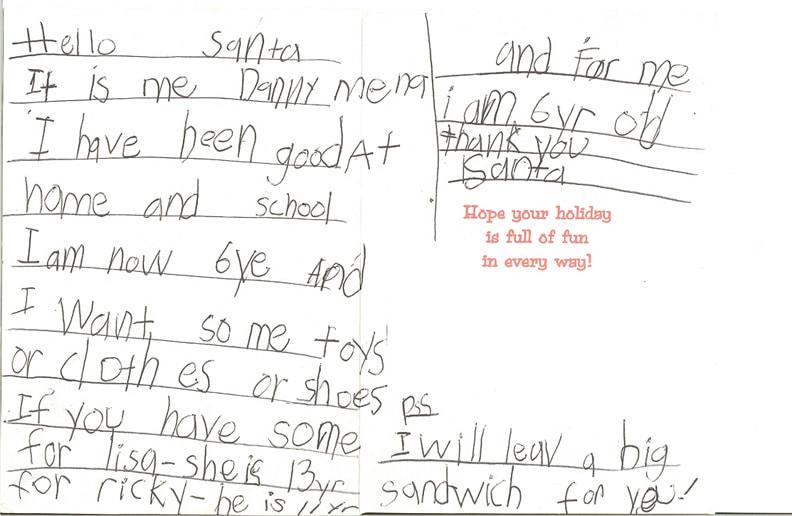 Hello Santa
It is me Danny mena
I have been good At
home and school
I am now 6ye And
I want some toys
or clothes or shoes
If you have some
for lisa - she is 13yr
for ricky - he is 11yr
and for me
i am 6yr old
thank you
Santa
Hope your holiday
is full of fun
in every way!
pss
I will leav a big
sandwich for you!